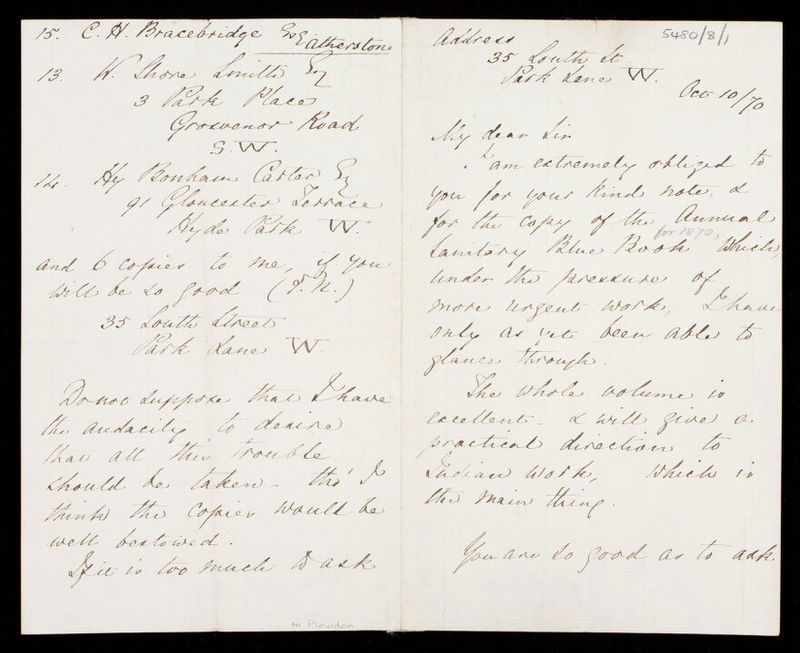 15. C. H. Bracebridge Esq Atherstone
13. W. Shore Smith Esq
3 Park Place
Grosvenor Road
S.W.
14. Hy Bonham Carter Esq
91 Gloucester Terrace
Hyde Park W.
and 6 copies to me, if you
will be so good (F.N.)
35 South Street
Park Lane W.
Do not suppose that I have
the audacity to desire
that all this trouble
should be taken - tho' I
think the copies would be
well bestowed.
If it is too much to ask
to Plowden
5480/8/1
Address
35 South St
Park Lane W.
Oct 10/70
My dear Sir
I am extremely obliged to
you for your kind note, &
for the copy of the Annual
Sanitary Blue Book for 1870, which,
under the pressure of
more urgent work, I have
only as yet been able to
glance through.
The whole volume is
excellent - & will give a
practical direction to
Indian work, which is
the main thing.
You are so good as to ask